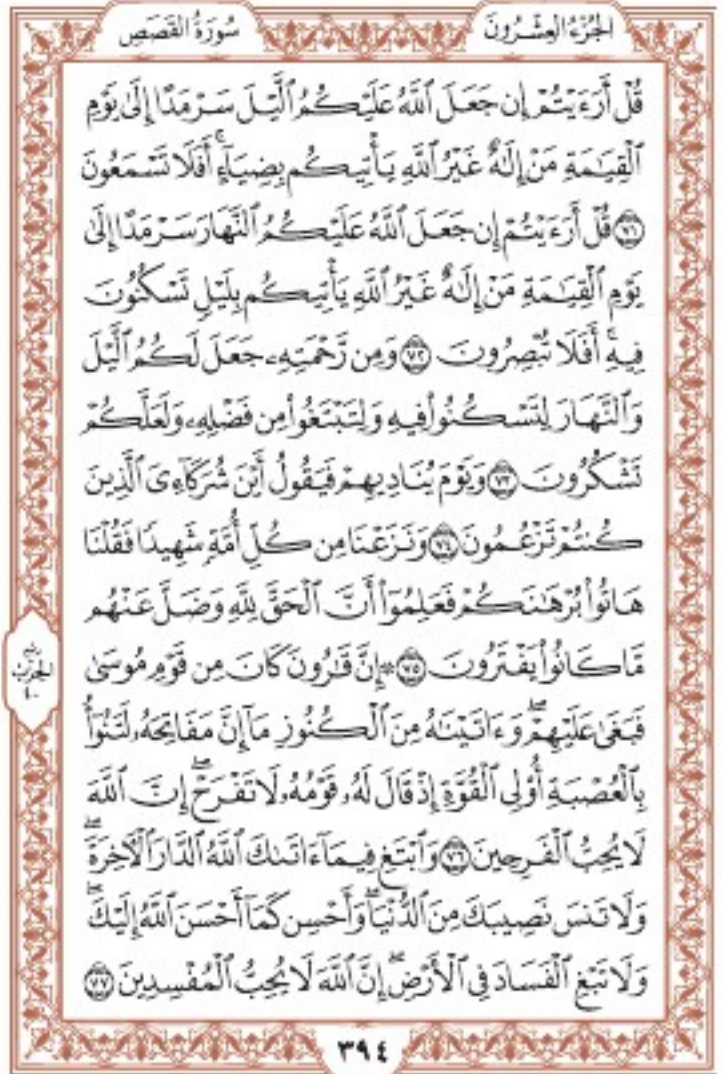 الجُزْءُ العِشْرُونَ
سُورَةُ القَصَصِ
قُلْ أَرَءَيْتُمْ إِن جَعَلَ ٱللَّهُ عَلَيْكُمُ ٱلَّيْلَ سَرْمَدًا إِلَىٰ يَوْمِ
ٱلْقِيَٰمَةِ مَنْ إِلَٰهٌ غَيْرُ ٱللَّهِ يَأْتِيكُم بِضِيَآءٍ ۚ أَفَلَا تَسْمَعُونَ
٧١ قُلْ أَرَءَيْتُمْ إِن جَعَلَ ٱللَّهُ عَلَيْكُمُ ٱلنَّهَارَ سَرْمَدًا إِلَىٰ
يَوْمِ ٱلْقِيَٰمَةِ مَنْ إِلَٰهٌ غَيْرُ ٱللَّهِ يَأْتِيكُم بِلَيْلٍ تَسْكُنُونَ
فِيهِ ۚ أَفَلَا تُبْصِرُونَ ٧٢ وَمِن رَّحْمَتِهِۦ جَعَلَ لَكُمُ ٱلَّيْلَ
وَٱلنَّهَارَ لِتَسْكُنُوا۟ فِيهِ وَلِتَبْتَغُوا۟ مِن فَضْلِهِۦ وَلَعَلَّكُمْ
تَشْكُرُونَ ٧٣ وَيَوْمَ يُنَادِيهِمْ فَيَقُولُ أَيْنَ شُرَكَآءِىَ ٱلَّذِينَ
كُنتُمْ تَزْعُمُونَ ٧٤ وَنَزَعْنَا مِن كُلِّ أُمَّةٍ شَهِيدًا فَقُلْنَا
هَاتُوا۟ بُرْهَٰنَكُمْ فَعَلِمُوٓا۟ أَنَّ ٱلْحَقَّ لِلَّهِ وَضَلَّ عَنْهُم
مَّا كَانُوا۟ يَفْتَرُونَ ٧٥ ۞ إِنَّ قَٰرُونَ كَانَ مِن قَوْمِ مُوسَىٰ
فَبَغَىٰ عَلَيْهِمْ ۖ وَءَاتَيْنَٰهُ مِنَ ٱلْكُنُوزِ مَآ إِنَّ مَفَاتِحَهُۥ لَتَنُوٓأُ
بِٱلْعُصْبَةِ أُو۟لِى ٱلْقُوَّةِ إِذْ قَالَ لَهُۥ قَوْمُهُۥ لَا تَفْرَحْ ۖ إِنَّ ٱللَّهَ
لَا يُحِبُّ ٱلْفَرِحِينَ ٧٦ وَٱبْتَغِ فِيمَآ ءَاتَىٰكَ ٱللَّهُ ٱلدَّارَ ٱلْـَٔاخِرَةَ ۖ
وَلَا تَنسَ نَصِيبَكَ مِنَ ٱلدُّنْيَا ۖ وَأَحْسِن كَمَآ أَحْسَنَ ٱللَّهُ إِلَيْكَ ۖ
وَلَا تَبْغِ ٱلْفَسَادَ فِى ٱلْأَرْضِ ۖ إِنَّ ٱللَّهَ لَا يُحِبُّ ٱلْمُفْسِدِينَ ٧٧
ربع
الحزب
٤٠
٣٩٤